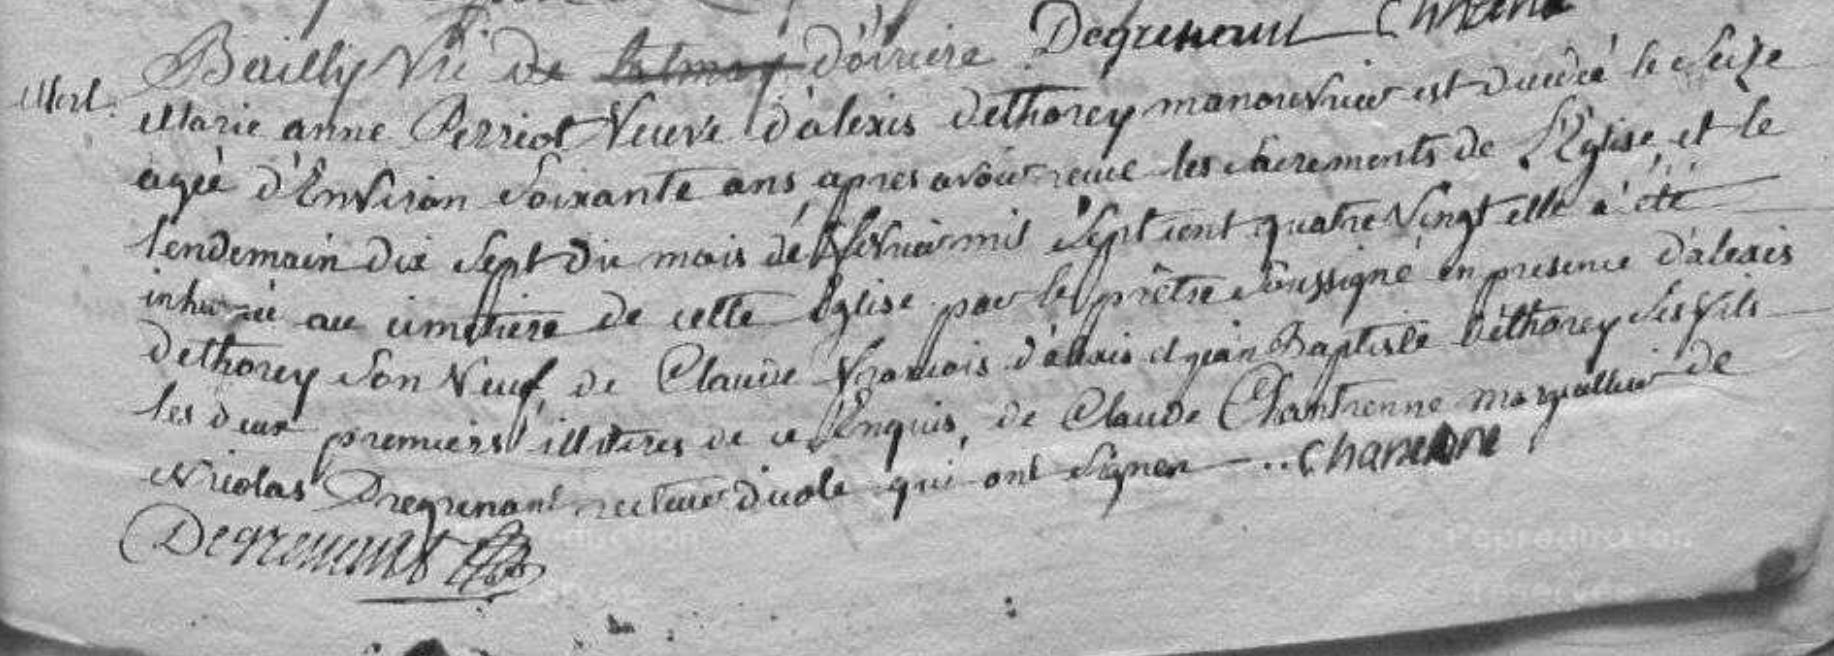 Degrenant
Bailly Vic de d'oiviere
Mort.
Marie anne Perriot Veuve d'alexis Dethorey manouvrier est decedé le Seize
agée d'Environ Soixante ans apres avoir reçue les sacrements de l'Eglise et le
lendemain dix Sept du mois de fevrier mil Sept cent quatre Vingt elle a été
inhumée au cimetiere de cette Eglise par le prêtre Soussigné en presence d'alexis
Dethorey Son Neuf, de Claude François d'alexis et jean Baptiste Dethorey Ses fils
les deux premiers illiteres de ce Enquis, de Claude Chantrenne marguillier de
Nicolas Dregrenant recteur d'ecole qui ont Signer
Degrenant